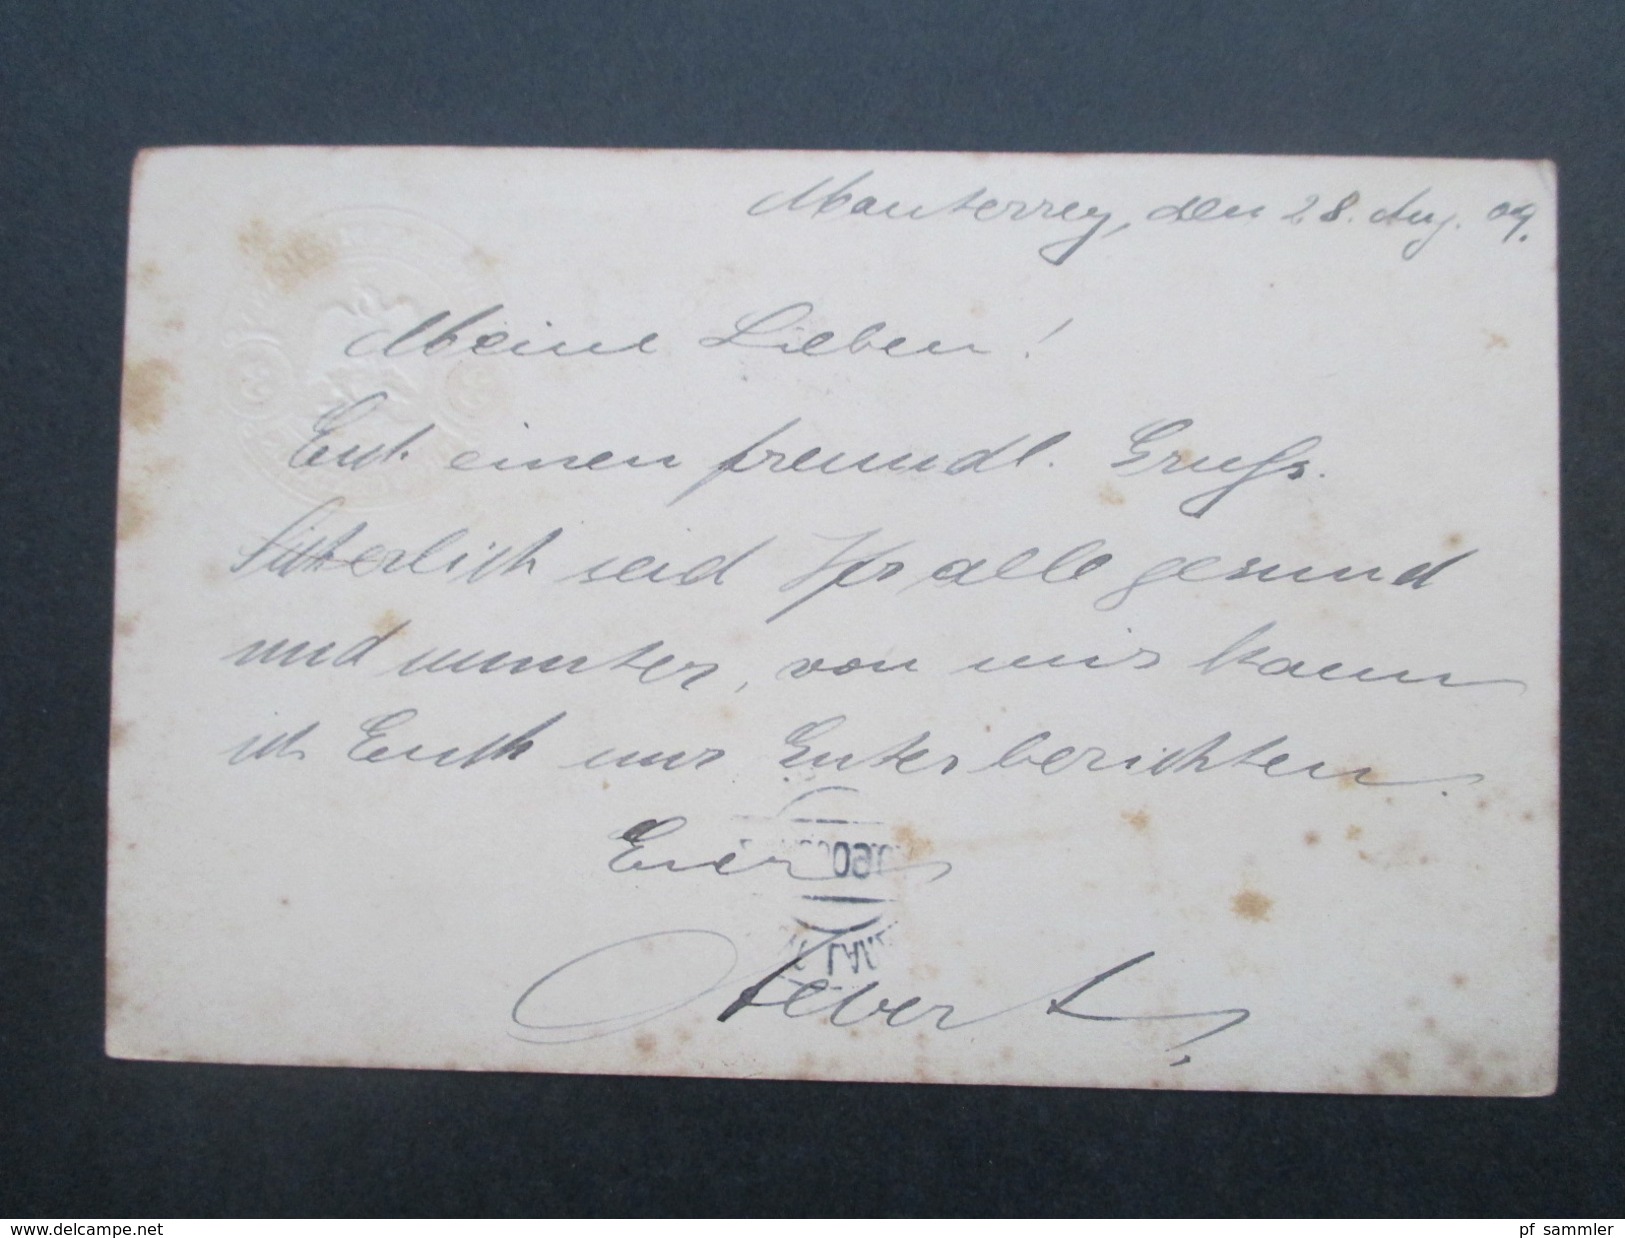 Monterrey, den 28. Aug. 09.
Meine Lieben!
Euch einen freundl. Gruß.
Sicherlich seid Ihr alle gesund
und munter, von mir kann
ich Euch nur Gutes berichten.
Euer
Albert
www.delcampe.net
pf_sammler